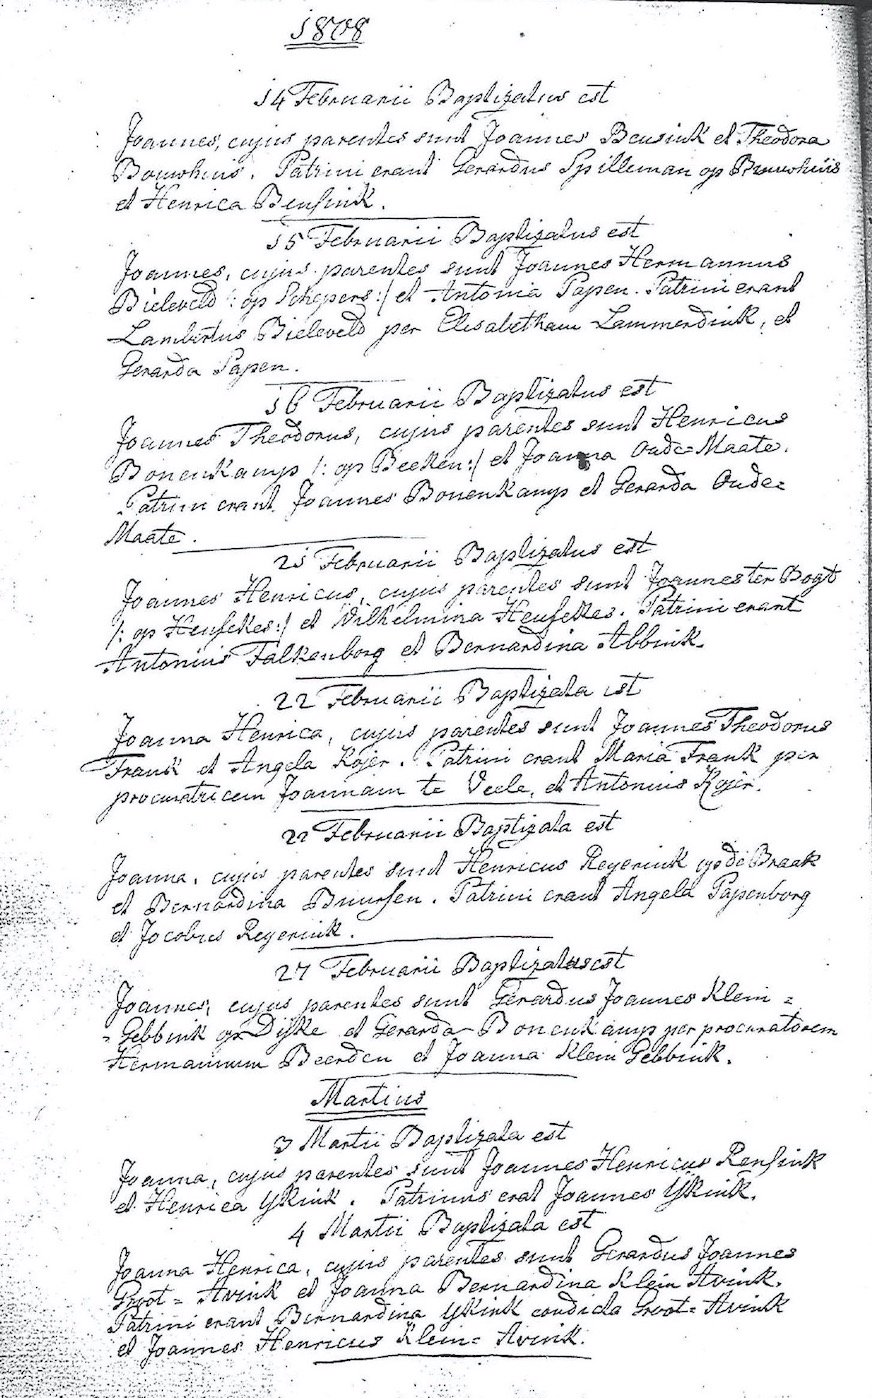 1808
14 Februarii Baptizatus est
Joannes, cujus parentes sunt Joannes Beusink et Theodora
Bouwhuis. Patrini erant Gerardus Spilleman op Bouwhuis
et Henrica Beusink.
15 Februarii Baptizatus est
Joannes, cujus parentes sunt Joannes Hermannus
Bieleveld /: op Schepers :/ et Antonia Papen. Patrini erant
Lambertus Bieleveld per Elisabetham Lammerdink, et
Gerarda Papen.
16 Februarii Baptizatus est
Joannes Theodorus, cujus parentes sunt Henricus
Bonenkamp /: op Beeken :/ et Joanna Oude=Maate.
Patrini erant Joannes Bonenkamp et Gerarda Oude=
Maate.
21 Februarii Baptizatus est
Joannes Henricus, cujus parentes sunt Joannes ter Bogt
/: op Heufekes :/ et Wilhelmina Heufekes. Patrini erant
Antonius Falkenborg et Bernardina Abbink.
22 Februarii Baptizata est
Joanna Henrica, cujus parentes sunt Joannes Theodorus
Frank et Angela Kojer. Patrini erant Maria Frank per
procuratricem Joannam te Veele, et Antonius Kojer.
22 Februarii Baptizata est
Joanna, cujus parentes sunt Henricus Reyerink op de Braak
et Bernardina Buursen. Patrini erant Angela Papenborg
et Jacobus Reyerink.
27 Februarii Baptizatus est
Joannes, cujus parentes sunt Gerardus Joannes Klein=
=Gebbink op Dijke et Gerarda Bonenkamp per procuratorem
Hermannum Beerden et Joanna Klein Gebbink.
Martius
3 Martii Baptizata est
Joanna, cujus parentes sunt Joannes Henricus Rensink
et Henrica Ykink. Patrinus erat Joannes Ykink.
4 Martii Baptizata est
Joanna Henrica, cujus parentes sunt Gerardus Joannes
Groot=Avink et Joanna Bernardina Klein Avink.
Patrini erant Bernardina Ykink condicta Groot=Avink
et Joannes Henricus Klein=Avink.